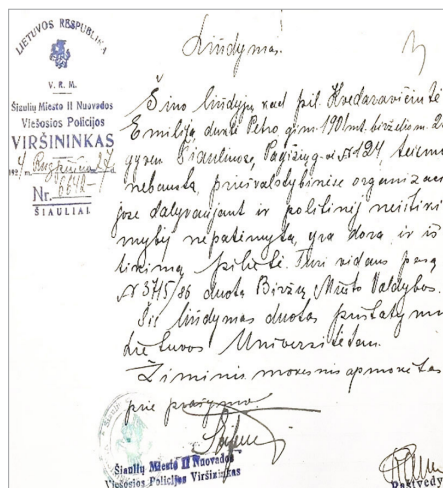 LIETUVOS RESPUBLIKA
V. R. M.
Šiaulių Miesto II Nuovados
Viešosios Policijos
VIRŠININKAS
192 m. 27 d.
Nr. 6648-
ŠIAULIAI
Liudymas.
Šiuo liudyju kad pil. Kvedaravičiutė
Emilija duktė Petro gim. 1901 mt. birželio m. 2
gyven. Šiauliuose, Pagėžių g-vė № 124, teismo
nebausta, priešvalstybinėse organizac
jose dalyvaujant ir politinėj neištiki
mybėj nepatėmyta, yra dora ir iš
tikima pilietė. Turi vidaus pasą
№ 3715/86 duotą Biržų Miesto Valdybos.
Šis liudymas duotas pristatymui
Lietuvos Universitetan.
Žiminis mokesnis apmokėtas
prie prašymo.
Šiaulių Miesto II Nuovados
Viešosios Policijos Viršininkas